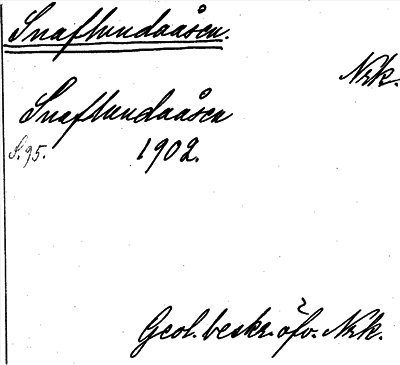 Snaflundaåsen.
Nrk.
Snaflundaåsen
S. 95. 1902.
Geol. beskr. öfv. Nrk.